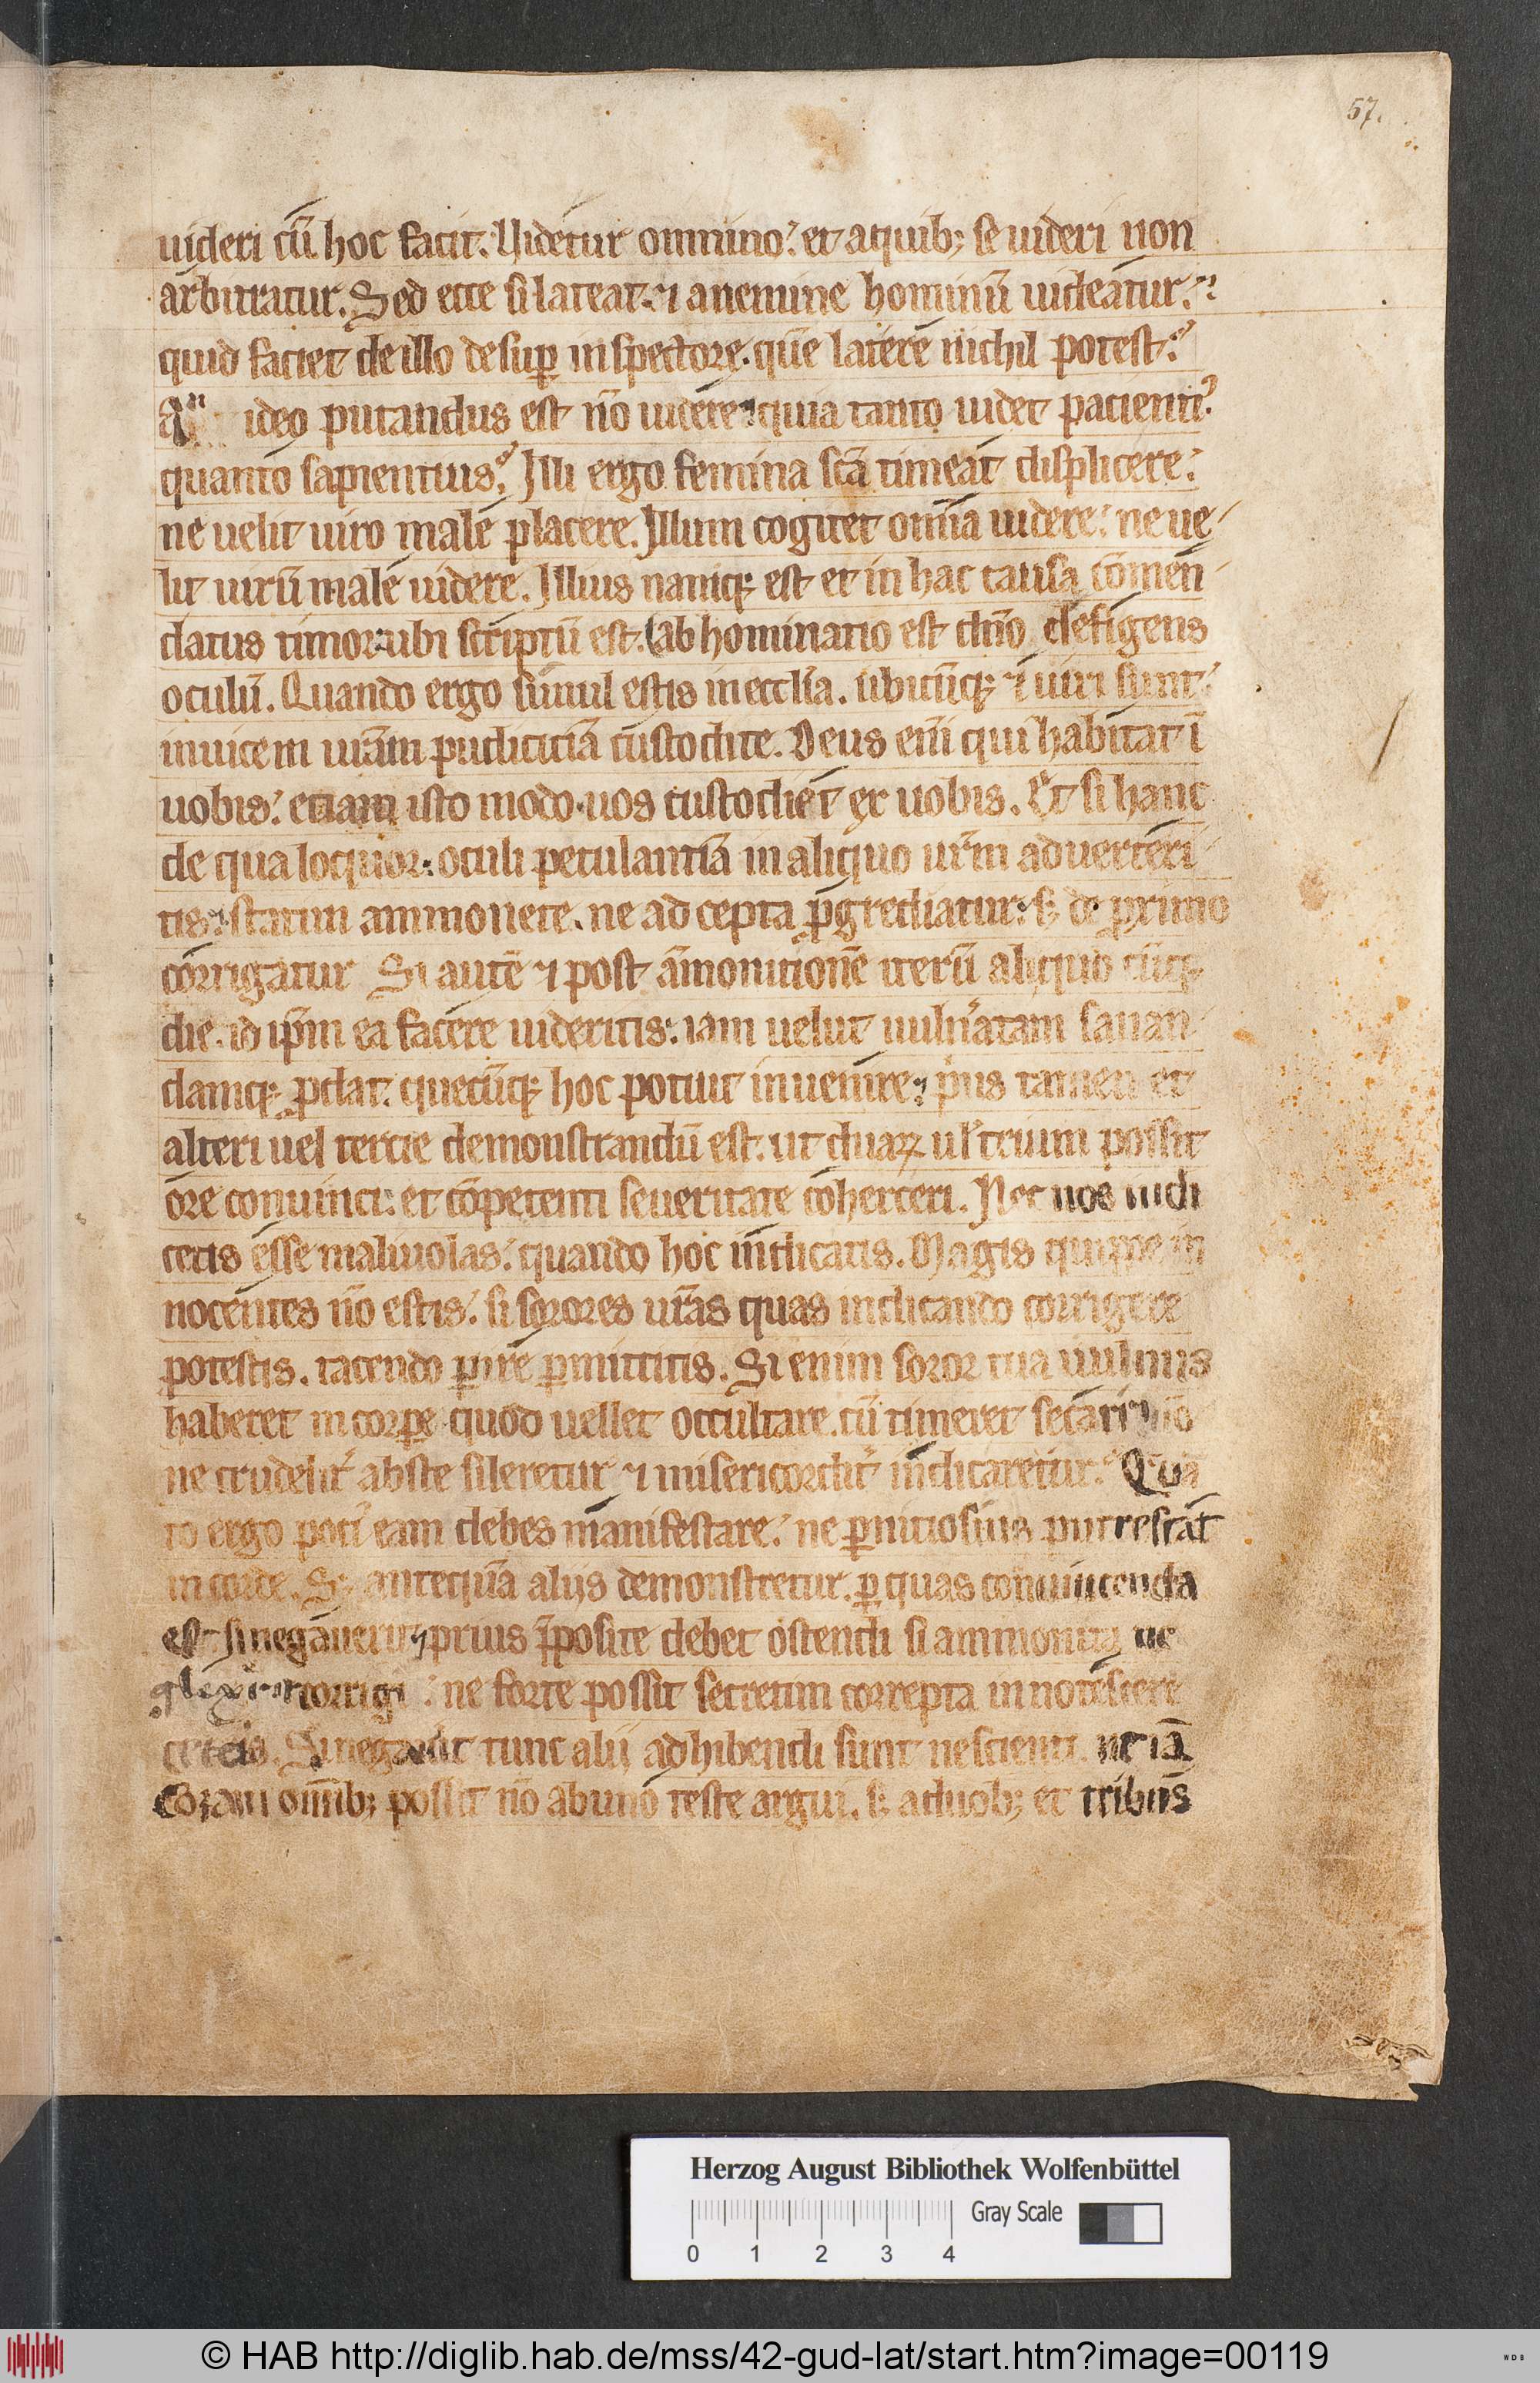 57.
uideri cū hoc facit. Videtur omnino: et aquib; se uideri non
arbitratur. Sed ecce si lateat. ⁊ anemine hominū uideatur.
quid faciet de illo desuꝑ inspectore. quē latere nichil potest?
An ideo putandus est nō uidere quia tanto uidet patienti᾽
quanto sapientius? Illi ergo femina sc̄a timeat displicere:
ne uelit uiro male placere. Illum cogitet om̄ia uidere: ne ue
lit uirū male uidere. Illius namq; est et in hac causa cōmen
datus timor: ubi scriptū est. Abhominatio est dn̄o defigens
oculū. Quando ergo simul estis in eccl̄ia. ubicūq; ⁊ uiri sunt:
inuicem ur̄am pudicitiā custodite. Deus eni̅ qui habitat ī
uobis: etiam isto modo uos custodiet ex uobis. Et si hanc
de qua loquor: oculi petulantiā in aliquo ur̄m aduerteri
tis: statim ammonete. ne ad cepta ꝓgrediatur: s; de proximo
corrigatur Si autē ⁊ post āmonitionē iterū aliquo cūq;
die. id ip̄m ea facere uideritis: iam uelut uuln̄atam sanan
damq; ꝓdat. quecūq; hoc potuit inuenire. pius tamen et
alteri uel tercie demonstrandū est. ut duaꝝ ul̄ trium possit
ore conuinci: et cōpetenti seueritate coherceri. Nec uos iudi
cetis esse maliuolas: quando hoc indicatis. Magis quippe in
nocentes nō estis: si sorores ur̄as quas indicando corrigere
potestis. tacendo ꝑire ꝑmittitis. Si enim soror tua uulnus
haberet in corꝑe quod uellet occultare. cū timeret secari nō
ne crudelit᾽ abste sileretur ⁊ misericordit᾽ indicaretur? Quā
to ergo poti᾽ eam debes manifestare: ne ꝑnitiosius putrescat
in corde. S; antequā aliis demonstretur. ꝑ quas conuincenda
est si negauerit prius p̄posite debet ostendi si ammonita ne
glexerit corrigi: ne forte possit secretim correpta innotescere
ceteis. Si negauerit tunc alii adhibendi sunt nescienti. ut iā
coram omīb; possit nō abuno teste argui. s; aduob; et tribus
Herzog August Bibliothek Wolfenbüttel
Gray Scale
0 1 2 3 4
© HAB http://diglib.hab.de/mss/42-gud-lat/start.htm?image=00119
WDB